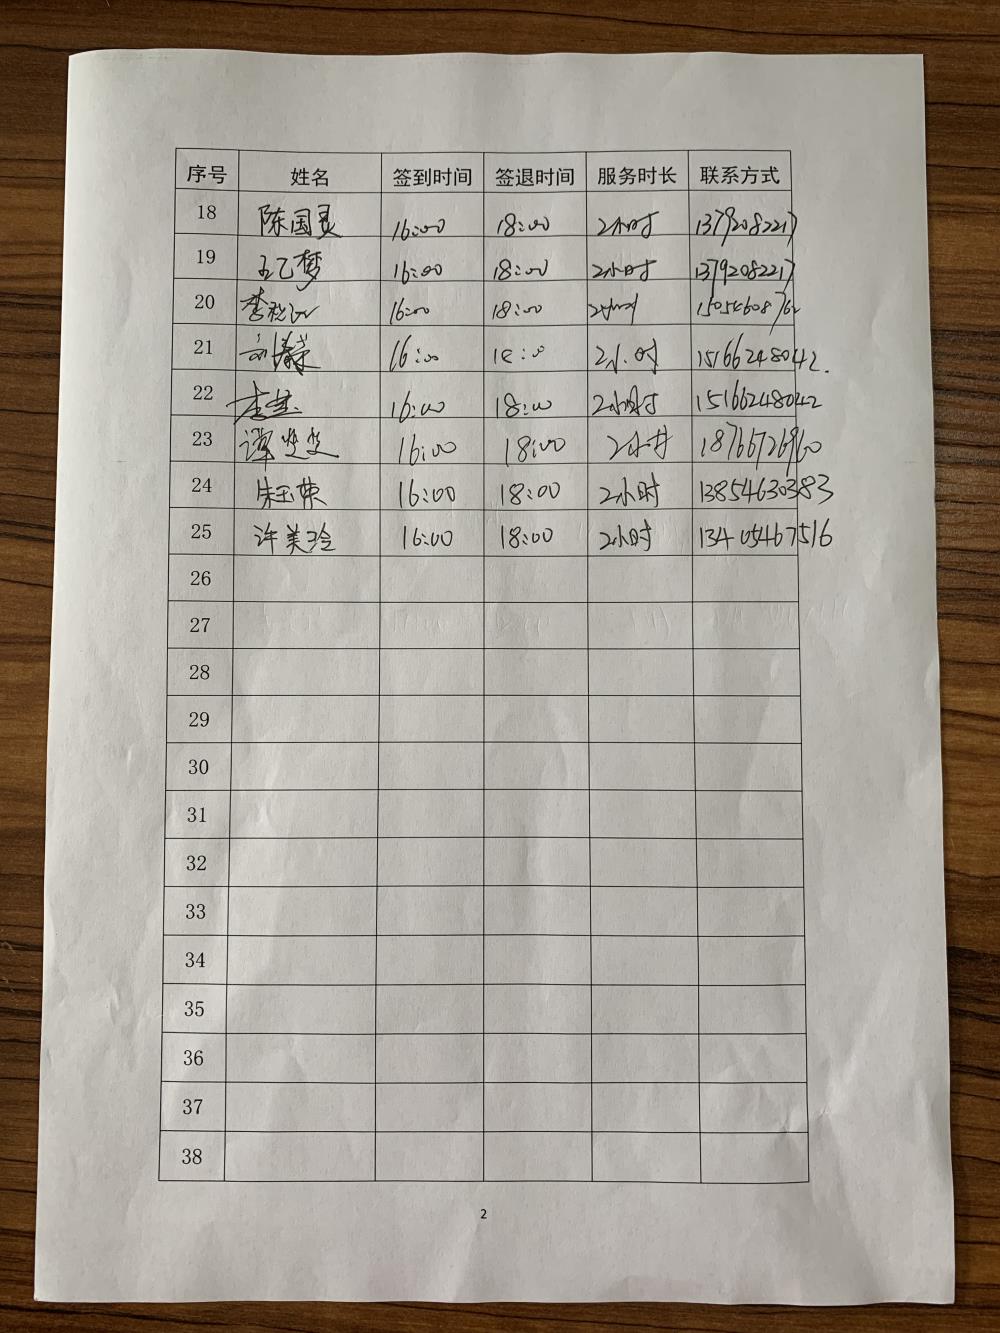 序号 姓名 签到时间 签退时间 服务时长 联系方式
18 陈国灵 16:00 18:00 2小时 13792082217
19 王乙梦 16:00 18:00 2小时 13792082217
20 16:00 18:00 2小时 15054608762
21 16:00 18:00 2小时 15166248042.
22 16:00 18:00 2小时 15166248042
23 谭 16:00 18:00 2小时 18766726960
24 朱玉荣 16:00 18:00 2小时 13854630383
25 许美玲 16:00 18:00 2小时 13405467516
26
27
28
29
30
31
32
33
34
35
36
37
38
2